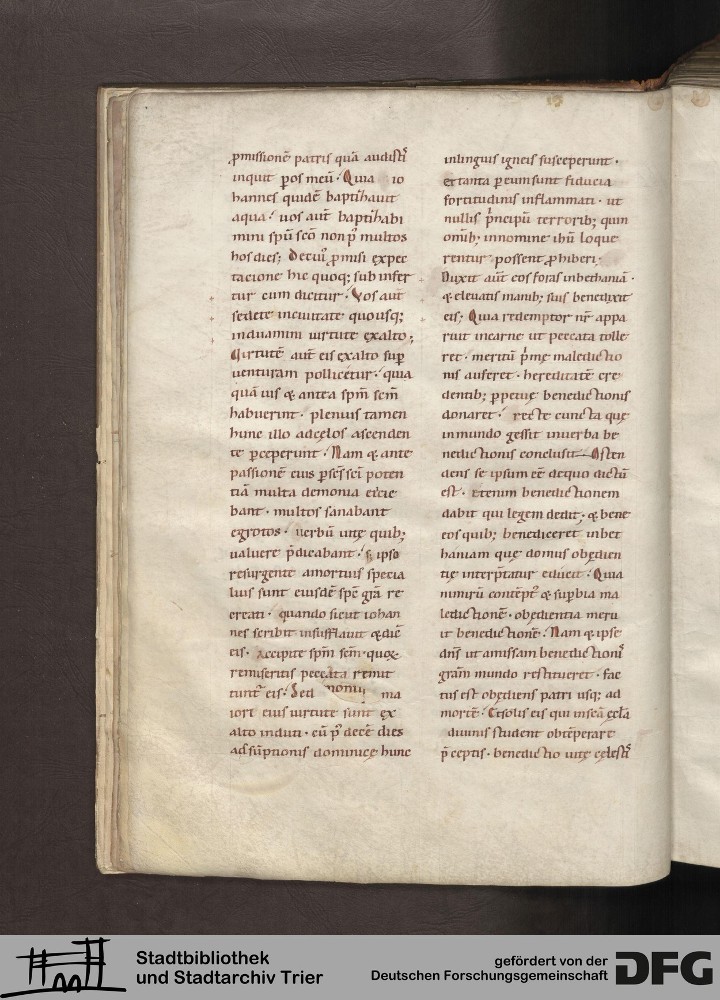 ꝓmissionē patris quā audistis
inquit ꝑ os meū · Quia io
hannes quidē baptizauit
aqua · uos aut̄ baptizabi
mini spū scō non p̾ multos
hos dies; De cui᾽ ꝓmisi expec
tatione hic quoq; sub infer
tur cum dicitur · Vos aut̄
sedete in ciuitate quousq;
induamini uirtute ex alto;
Virtutē aut̄ eis ex alto sup̄
uenturam pollicetur · quia
quāuis & antea spm̄ scm̄
habuerint · plenius tamen
hunc illo ad cęlos ascenden
te ꝑceperunt · Nam & ante
passionē eius
tiā multa demonia eicie
bant · multos sanabant
egrotos · uerbū uitę quib;
ualuere p̄dicabant · S; ipso
resurgente a mortuis specia
lius sunt eiusdē sp̄c grā re
creati · quando sicut iohan
nes scribit insufflauit & dic̄
eis · Accipite spm̄ scm̄ · quorꝝ
remiseritis peccata remit
tunt᾽ eis · Sed ma
iori eius uirtute sunt ex
alto induti · cū p̾ decē dies
adsūptionis dominicę hunc
in linguis igneis susceperunt ·
Et tanta ꝑ eum sunt fiducia
fortitudinis inflammati · ut
nullis p̄ncipū terrorib; quin
om̄ib; in nomine ihū loque
rentur possent ꝓhiberi ·
Duxit aut̄ eos foras in bethaniā ·
& eleuatis manib; suis benedixit
eis; Quia redemptor nr̄ appa
ruit in carne ut peccata tolle
ret · meritū p̄mę maledictio
nis auferet · hereditatē cre
dentib; ꝑpetuę benedictionis
donaret · recte cuncta quę
in mundo gessit in uerba be
nedictionis conclusit Osten
dens se ipsum eē de quo dictū
est · Etenim benedictionem
dabit qui legem dedit · & bene
eos quib; benediceret in bet
haniam quę domus obędien
tię interp̄tatur eduxit · Quia
nimirū contēpt᾽ & sup̄bia ma
ledictionē · obędientia meru
it benedictionē · Nam & ipse
dn̄s ut amissam benedictionis
grām mundo restitueret · fac
tus est obędiens patri usq; ad
mortē · Et solis eis qui in scā ęcl̄a
diuinis student obtēperare
p̄ceptis · benedictio uitę cęlestis
Stadtbibliothek
und Stadtarchiv Trier
gefördert von der
Deutschen Forschungsgemeinschaft
DFG